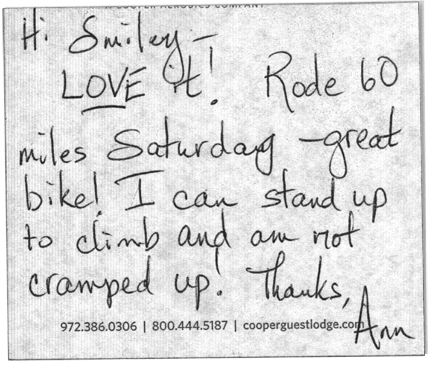 A COOPER AEROBICS COMPANY
Hi Smiley—
LOVE it! Rode 60
miles Saturday — great
bike! I can stand up
to climb and am not
cramped up! Thanks,
Ann
972.386.0306 | 800.444.5187 | cooperguestlodge.com